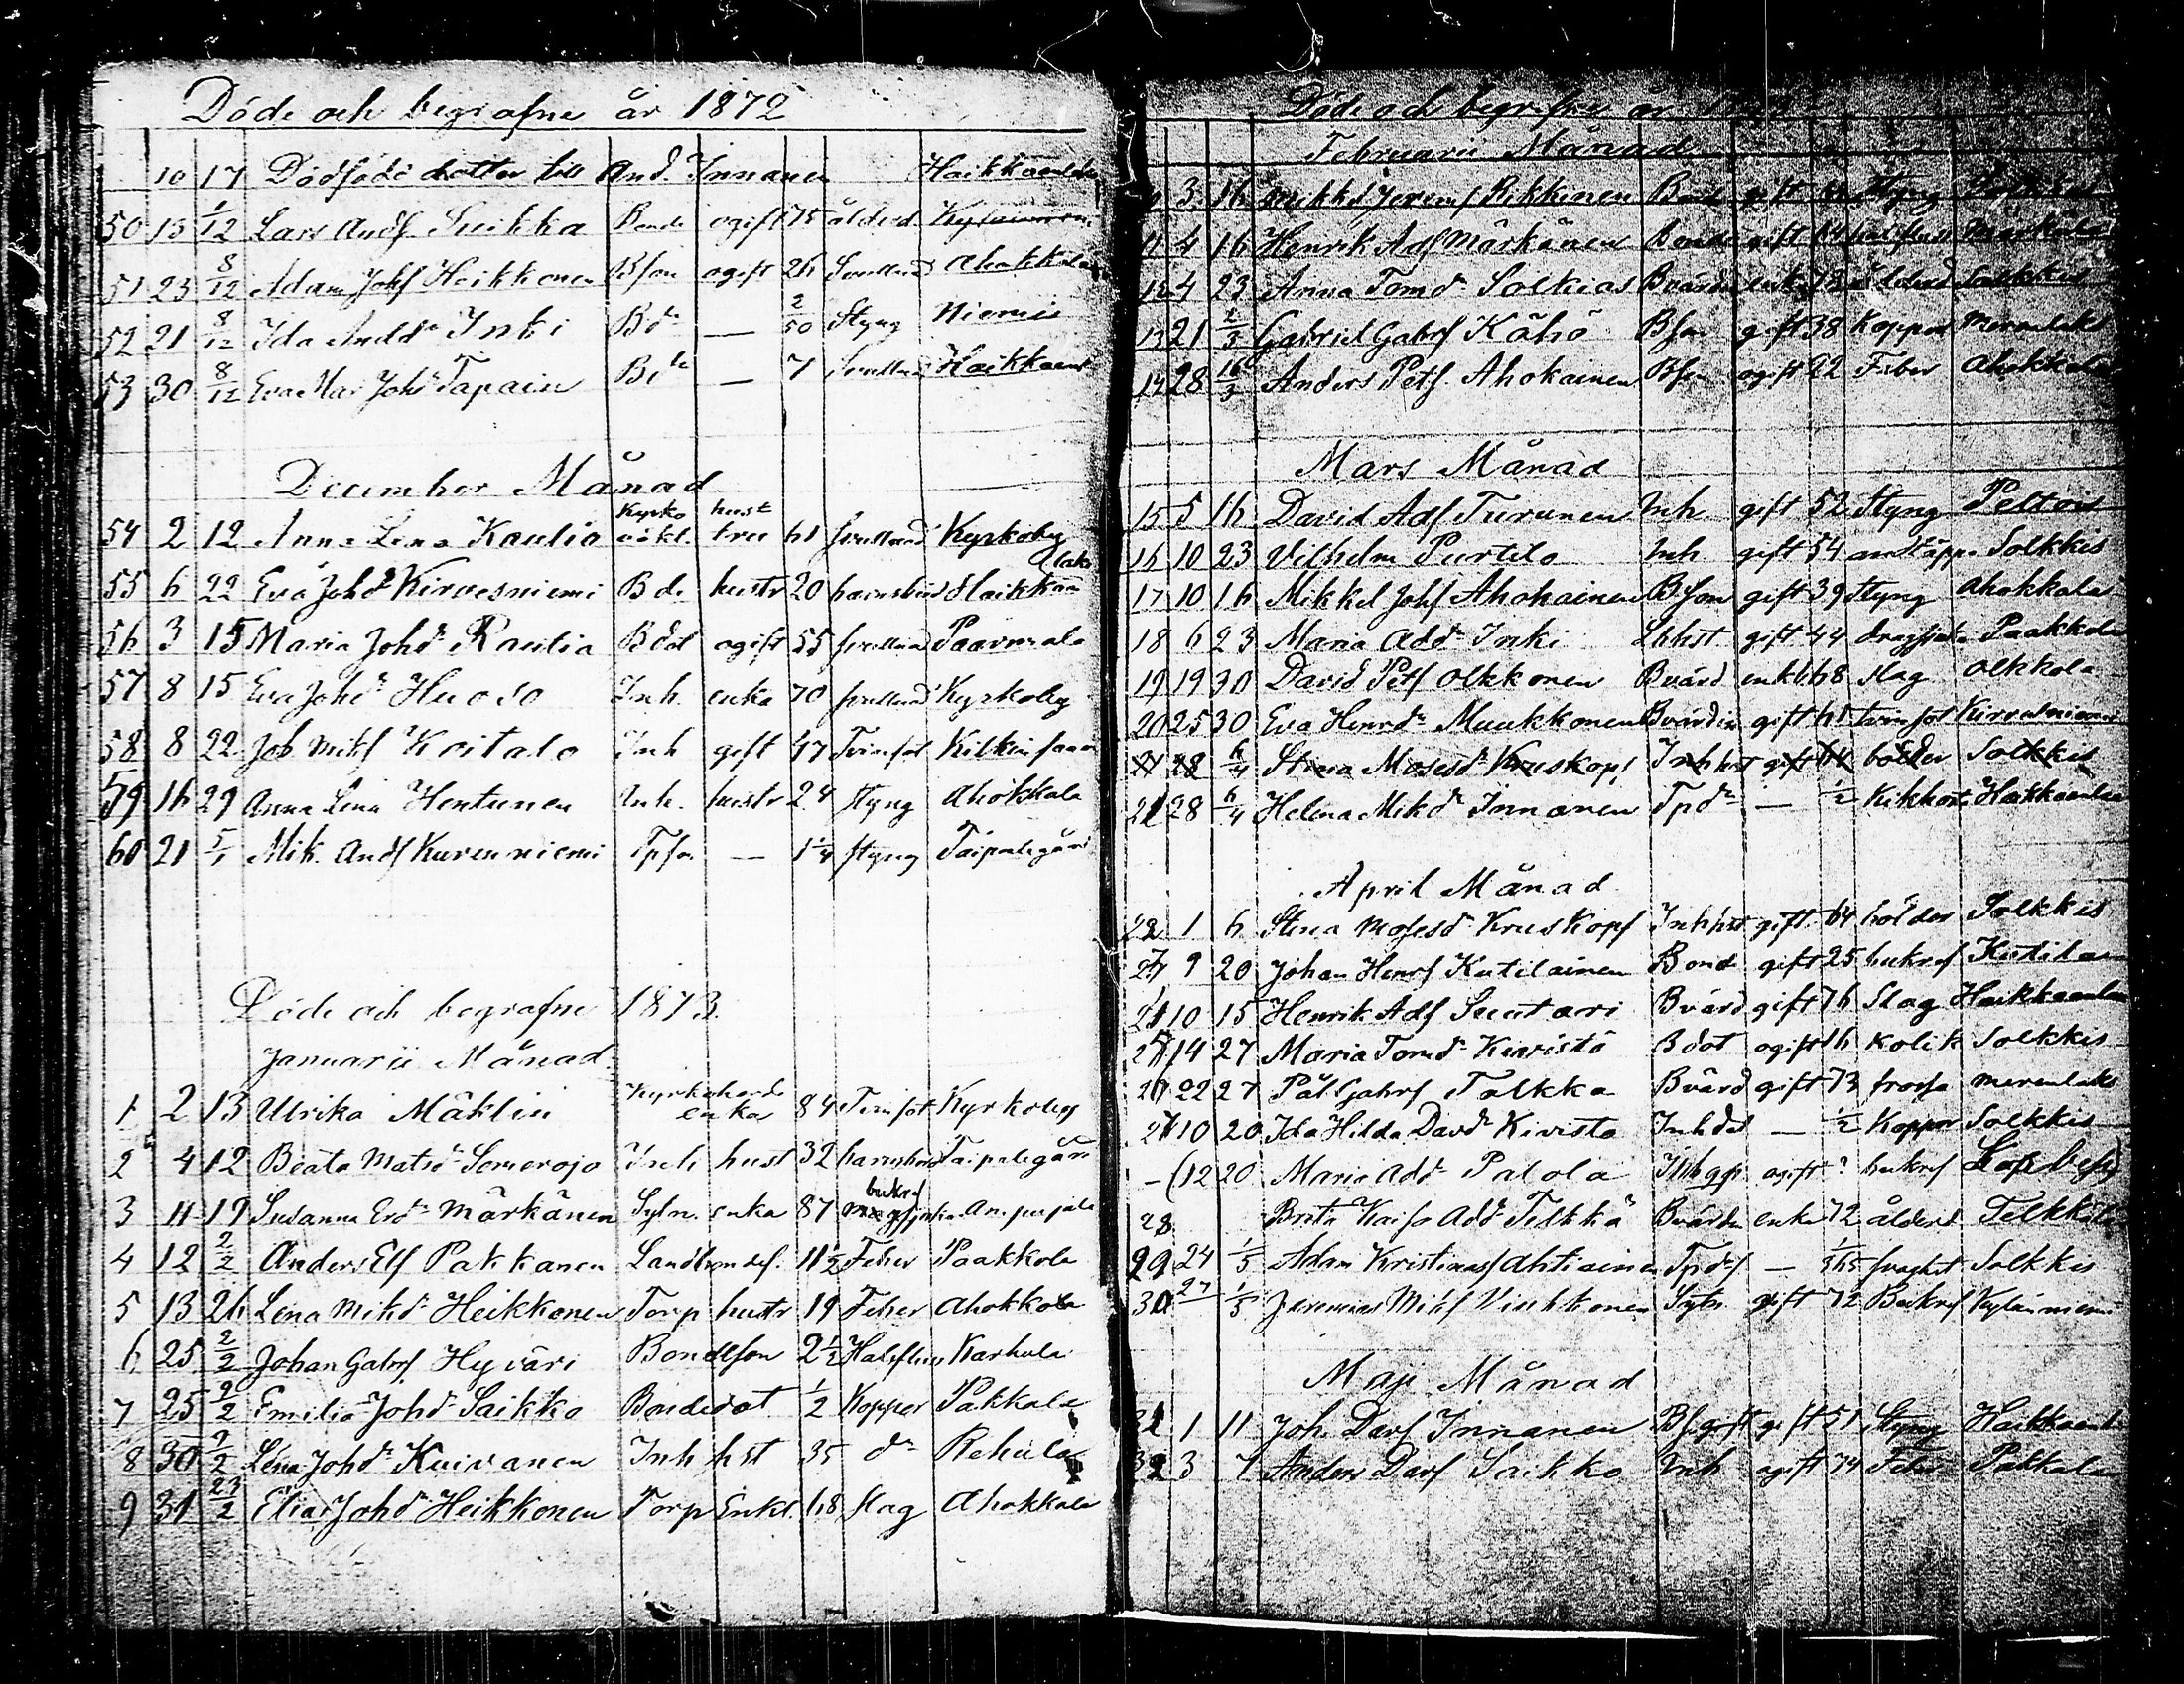 Döde och begrafne år 1872
10 17 Dödfödd dotter till And. Innanen Haikkaanlaks
50 15 1/12 Lars Andf Suikka Bonde ogift 75 ålderd.
51 23 8/12 Adam Johf Heikkonen Bson ogift 26 Ahokkala
52 21 8/12 Ida Andd Inki Bdr — 2/50 Styng Niemis
53 30 8/12 Eva Mar Johd Tapain Bdr — 7 Haikkaanl
December Månad
54 2 12 Anna Lena Rautio Kyrko väkt. hustru 61 Kyrkoby
55 6 22 Eva Johd Kirvesniemi Bde hustr 20 barnsbörd Haikkaanlaks
56 3 15 Maria Johd Rautia Bdot ogift 55 Paavimala
57 8 15 Eva Johd Huoso Inh. enka 70 Kyrkoby
58 8 22 Joh Mikf Koitalo Inh gift 47 Tvinsot
59 16 29 Anna Lena Hentunen Inh. hustr 24 styng Ahokkala
60 21 5/1 Mik. Andf Kurenniemi Tpson — 1 1/4 styng Taipalegård
Döde och begrafne 1873.
Januarii Månad.
1 2 13 Ulrika Mäklin enka 84 Tvinsot Kyrkoby
2 4 12 Beata Matsd Somerojo Inh hust 32 barnsbörd Taipalegård
3 11 19 Susanna Erd Märkänen Sytn. enka 87 bukref
4 12 2/2 Anders Elf Pakkanen 11 1/2 Feber Paakkola
5 13 26 Lena Mikd Heikkonen Torp hustr 19 Feber Ahokkola
6 25 2/2 Johan Gabrf Hyväri Bondeson 2 1/2 Halsfluss Karhula
7 25 9/2 Emilia Johd Saikko Bondedot 1/2 Koppor Pakkala
8 30 9/2 Lena Johd Kuivanen Inh hst 35 do Rehula
9 31 23/2 Elias Johd Heikkonen Torp Enkl. 68 slag Ahokkala
Döde och begrafne år
Februarii Månad
3 16 Mikkel Jeremf Rikkonen Bond gift Styng
11 4 16 Henrik Adf Märkänen Bonde gift 64 halsfluss Märkälä
12 4 23 Anna Tomd Solkias enka ålderd Solkkis
13 21 2/3 Gabriel Gabrf Kähö Bson gift 38 Koppor Merenlaks
14 28 16/3 Anders Petf. Ahokainen Bson ogift 22 Feber Ahokkala
Mars Månad
15 5 16 David Adf Turunen Inh. gift 52 Styng Peltois
16 10 23 Vilhelm Purtilo Inh. gift 54 andtäppa Solkkis
17 10 16 Mikkel Johf Ahokainen Bson gift 39 Styng Ahokkala
18 6 23 Maria Add Inki gift 44 dragsjuka Paakkola
19 19 30 David Petf Olkkonen Bvärd enkl 68 slag Olkkola
20 25 30 Eva Henrd Muukkonen Bvärdin gift 61 tvinsot Kirvesniemi
21 28 6/4 Stina Mosesd Kruskopf Inhhst gift 64 bölder Solkkis
21 28 6/4 Helena Mikd Innanen Tpdr — 1/2 Kikhosta Haikkaanlaks
April Månad
22 1 6 Stina Mosesd Kruskopf Inhhst gift 64 bölder Solkkis
9 20 Johan Henrf Kutilainen Bond gift 25 bukref Kutila
10 15 Henrik Adf Suutari Bvärd gift 76 Slag Haikkaanlaks
14 27 Maria Tomd Kiwistö Bdot ogift 16 Kolik Solkkis
22 27 Pål Gabrf Talkka Bvärd gift 73 frossa Merenlaks
10 20 Ida Hilda Davd Kivisto Inhdot — 1/2 Koppor Solkkis
– (12 20 Maria Add Palola ogift ? bukref
28 Brita Kaisa Add Telkkä Bvärdin enka 72 ålderd Telkkälä
29 24 1/5 Adam Kristinasf Ahtiainen Tpdf — Solkkis
30 27 1/5 Jeremias Mikf Vinkkonen Sytn gift 72 Bukref
Maji Månad
31 1 11 Joh. Davf Innanen gift 51 Styng Haikkaanl
32 3 7 Anders Davf Saikko Inh ogift 74 Feber Pakkala